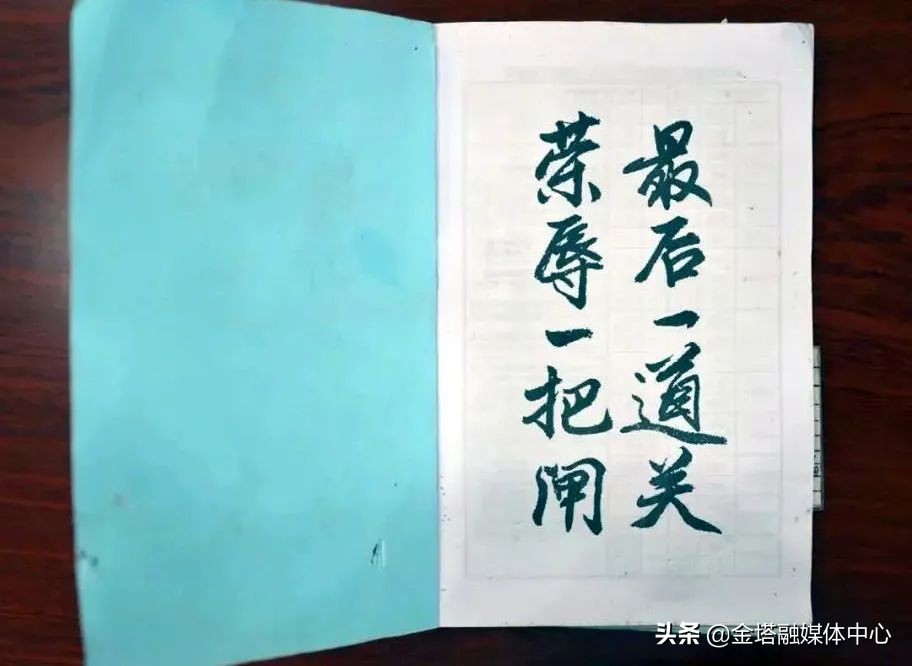 最后一道关
荣辱一把闸
头条 @金塔融媒体中心